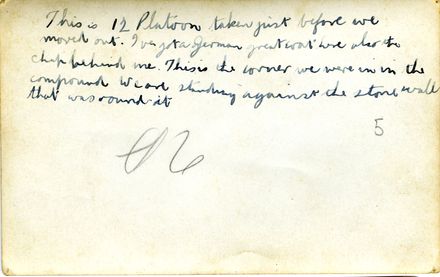 This is 12 Platoon taken just before we
moved out. I've got a German great coat here also the
chap behind me. This is the corner we were in in the
compound We are standing against the stone wall
that was round it
5